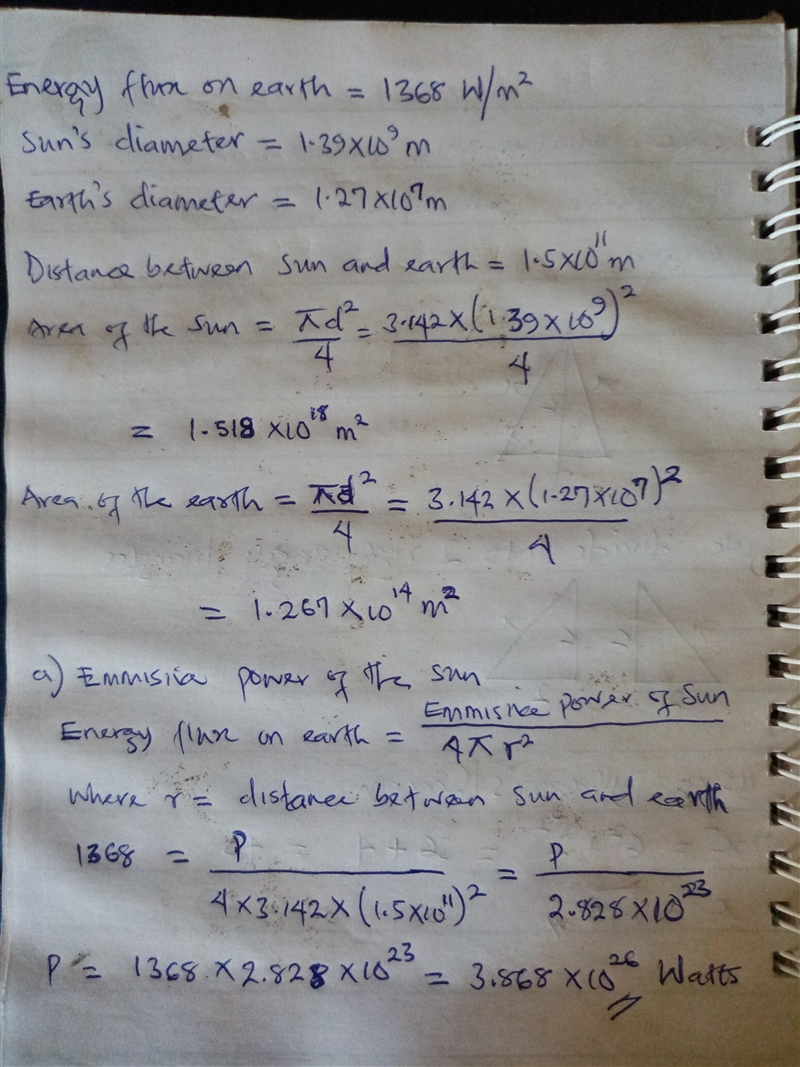 Energy flux on earth = 1368 W/m²
Sun's diameter = 1.39×10⁹ m
Earth's diameter = 1.27×10⁷m
Distance between Sun and earth = 1.5×10¹¹ m
Area of the Sun = πd²/4 = 3.142×(1.39×10⁹)²/4
= 1.518 ×10¹⁸ m²
Area of the earth = πd²/4 = 3.142×(1.27×10⁷)²/4
= 1.267×10¹⁴ m²
a) Emmisive power of the sun
Energy flux on earth = Emmisive power of Sun/4πr²
Where r = distance between Sun and earth
1368 = P/4×3.142×(1.5×10¹¹)² = P/2.828×10²³
P = 1368 × 2.828 ×10²³ = 3.868 ×10²⁶ Watts